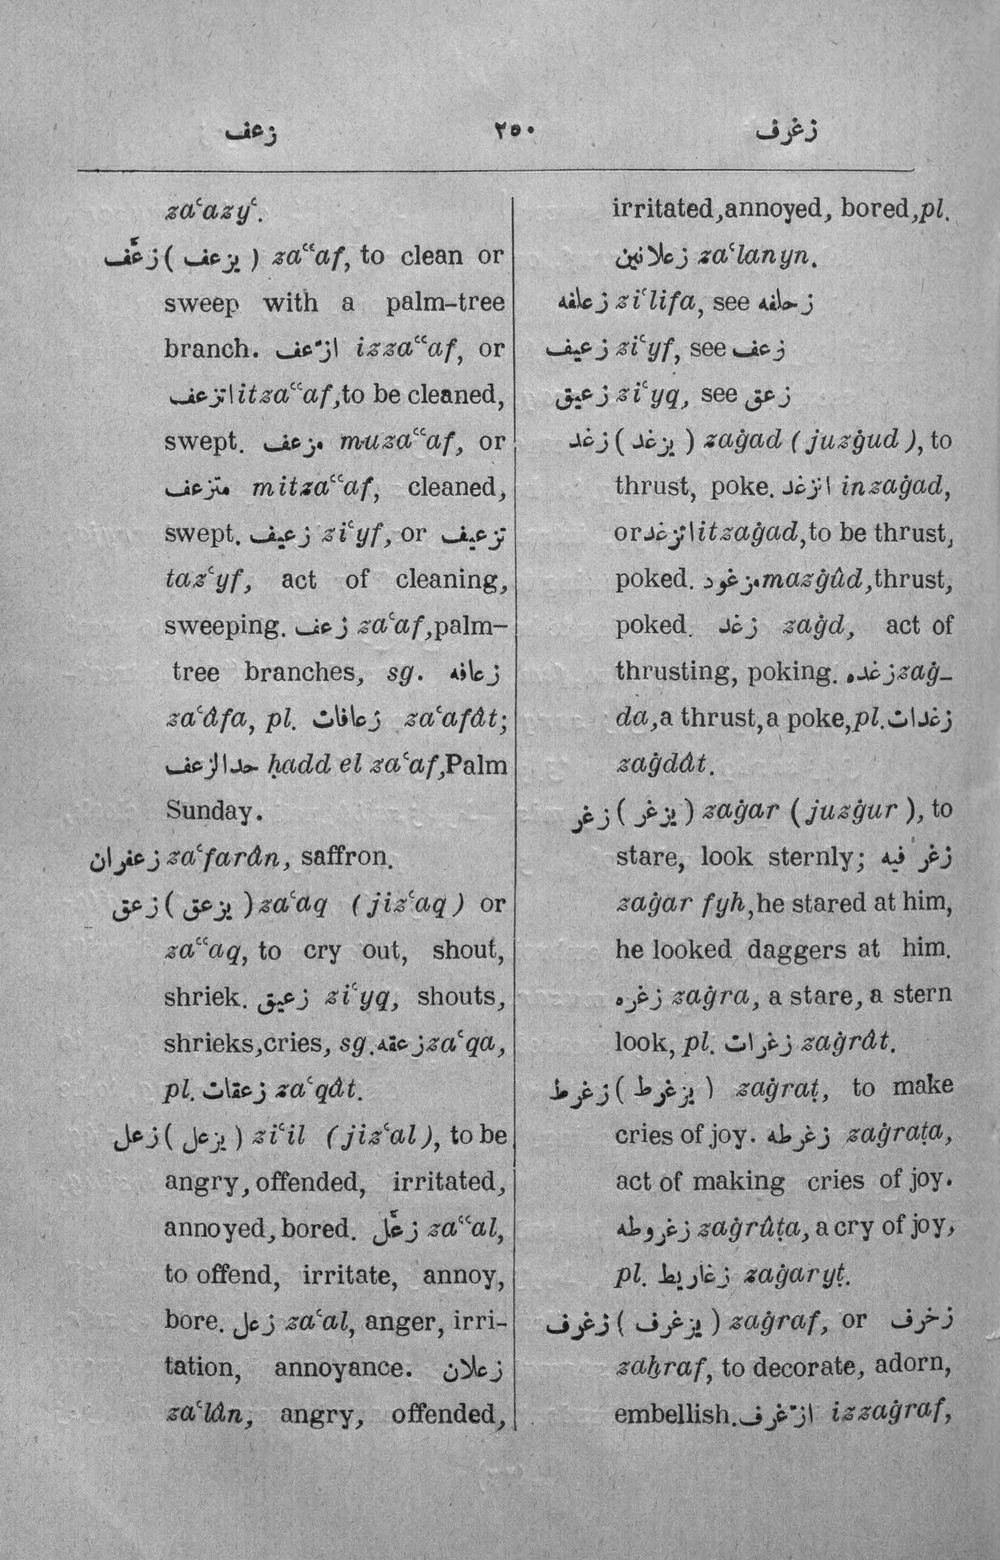 زعف ٢٥٠ زغرف
zaʿazyʿ.
زعّف ( يزعف ) zaʿʿaf, to clean or
sweep with a palm-tree
branch. ازّعف izzaʿʿaf, or
اتزعف itzaʿʿaf, to be cleaned,
swept. مزعف muzaʿʿaf, or
متزعف mitzaʿʿaf, cleaned,
swept. زعيف ziʿyf, or تزعيف
tazʿyf, act of cleaning,
sweeping. زعف zaʿaf, palm-
tree branches, sg. زعافه
zaʿâfa, pl. زعافات zaʿafât;
حد الزعف ḥadd el zaʿaf, Palm
Sunday.
زعفران zaʿfarân, saffron.
زعق ( يزعق ) zaʿaq (jizʿaq) or
zaʿʿaq, to cry out, shout,
shriek. زعيق ziʿyq, shouts,
shrieks, cries, sg. زعقه zaʿqa,
pl. زعقات zaʿqât.
زعل ( يزعل ) ziʿil (jizʿal), to be
angry, offended, irritated,
annoyed, bored. زعّل zaʿʿal,
to offend, irritate, annoy,
bore. زعل zaʿal, anger, irri-
tation, annoyance. زعلان
zaʿlân, angry, offended,
irritated, annoyed, bored, pl.
زعلانين zaʿlanyn.
زعلفه ziʿlifa, see زحلفه
زعيف ziʿyf, see زعف
زعيق ziʿyq, see زعق
زغد ( يزغد ) zaġad (juzġud), to
thrust, poke. انزغد inzaġad,
or اتزغد itzaġad, to be thrust,
poked. مزغود mazġûd, thrust,
poked. زغد zaġd, act of
thrusting, poking. زغده zaġ-
da, a thrust, a poke, pl. زغدات
zaġdât.
زغر ( يزغر ) zaġar (juzġur), to
stare, look sternly; زغر فيه
zaġar fyh, he stared at him,
he looked daggers at him.
زغره zaġra, a stare, a stern
look, pl. زغرات zaġrât.
زغرط ( يزغرط ) zaġraṭ, to make
cries of joy. زغرطه zaġraṭa,
act of making cries of joy.
زغروطه zaġrûṭa, a cry of joy,
pl. زغاريط zaġaryṭ.
زغرف ( يزغرف ) zaġraf, or زخرف
zaḫraf, to decorate, adorn,
embellish. ازّغرف izzaġraf,